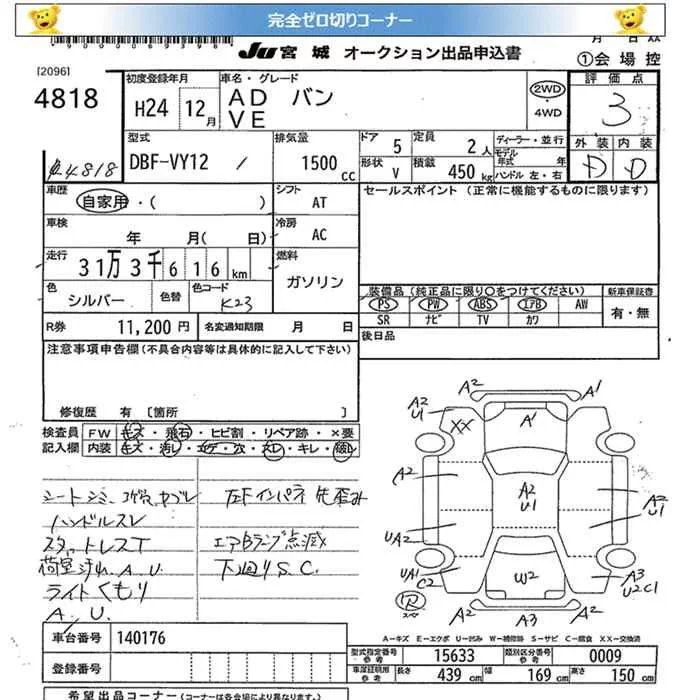 完全ゼロ切りコーナー
JU 宮城 オークション出品申込書
月 日 AA
①会場控
[2096]
4818
初度登録年月
H24 12月
車名・グレード
AD バン
VE
2WD
・
4WD
評価点
3
型式
DBF-VY12 /
排気量
1500cc
ドア 5
形状 V
定員 2人
積載 450kg
ディーラー・並行
モデル年式 年
ハンドル 左・右
外装 内装
D D
R4818
車歴
自家用・( )
シフト
AT
セールスポイント (正常に機能するものに限ります)
車検
年 月( 日)
冷房
AC
走行
31万3千616km
燃料
ガソリン
色
シルバー
色替
色コード
K23
装備品 (純正品に限り○をつけてください)
PS PW ABS エアB AW
SR ナビ TV カワ
新車保証書
有・無
R券 11,200円
名変通知期限 月 日
後日品
注意事項申告欄 (不具合内容等は具体的に記入して下さい)
修復歴 有 〔箇所 〕
検査員記入欄
FW キズ・飛石・ヒビ割・リペア跡・×要
内装 キズ・汚レ・コゲ・穴・スレ・キレ・破レ
シートシミ、コゲ穴、ヤブレ
ハンドルスレ
スタットレスT
荷室汚れ、A、U
ライトくもり
A、U、
左Fインパネ先歪み
エアBランプ点滅
下廻りS.C.
A2 A1
A2
U1
XX
A1
A2
A2
U1
A2
U1
UA2
UA1
C2
W2
A3
U2C1
R
スペア
A2 A3 A2
A－キズ E－エクボ U－凹み W－補修跡 S－サビ C－腐食 XX－交換済
車台番号 140176
型式指定番号
参考
15633
類別区分番号
参考
0009
登録番号
車庫証明用
参考
長さ 439 cm 幅 169 cm 高さ 150 cm
希望出品コーナー (コーナーは各会場により異なります。)